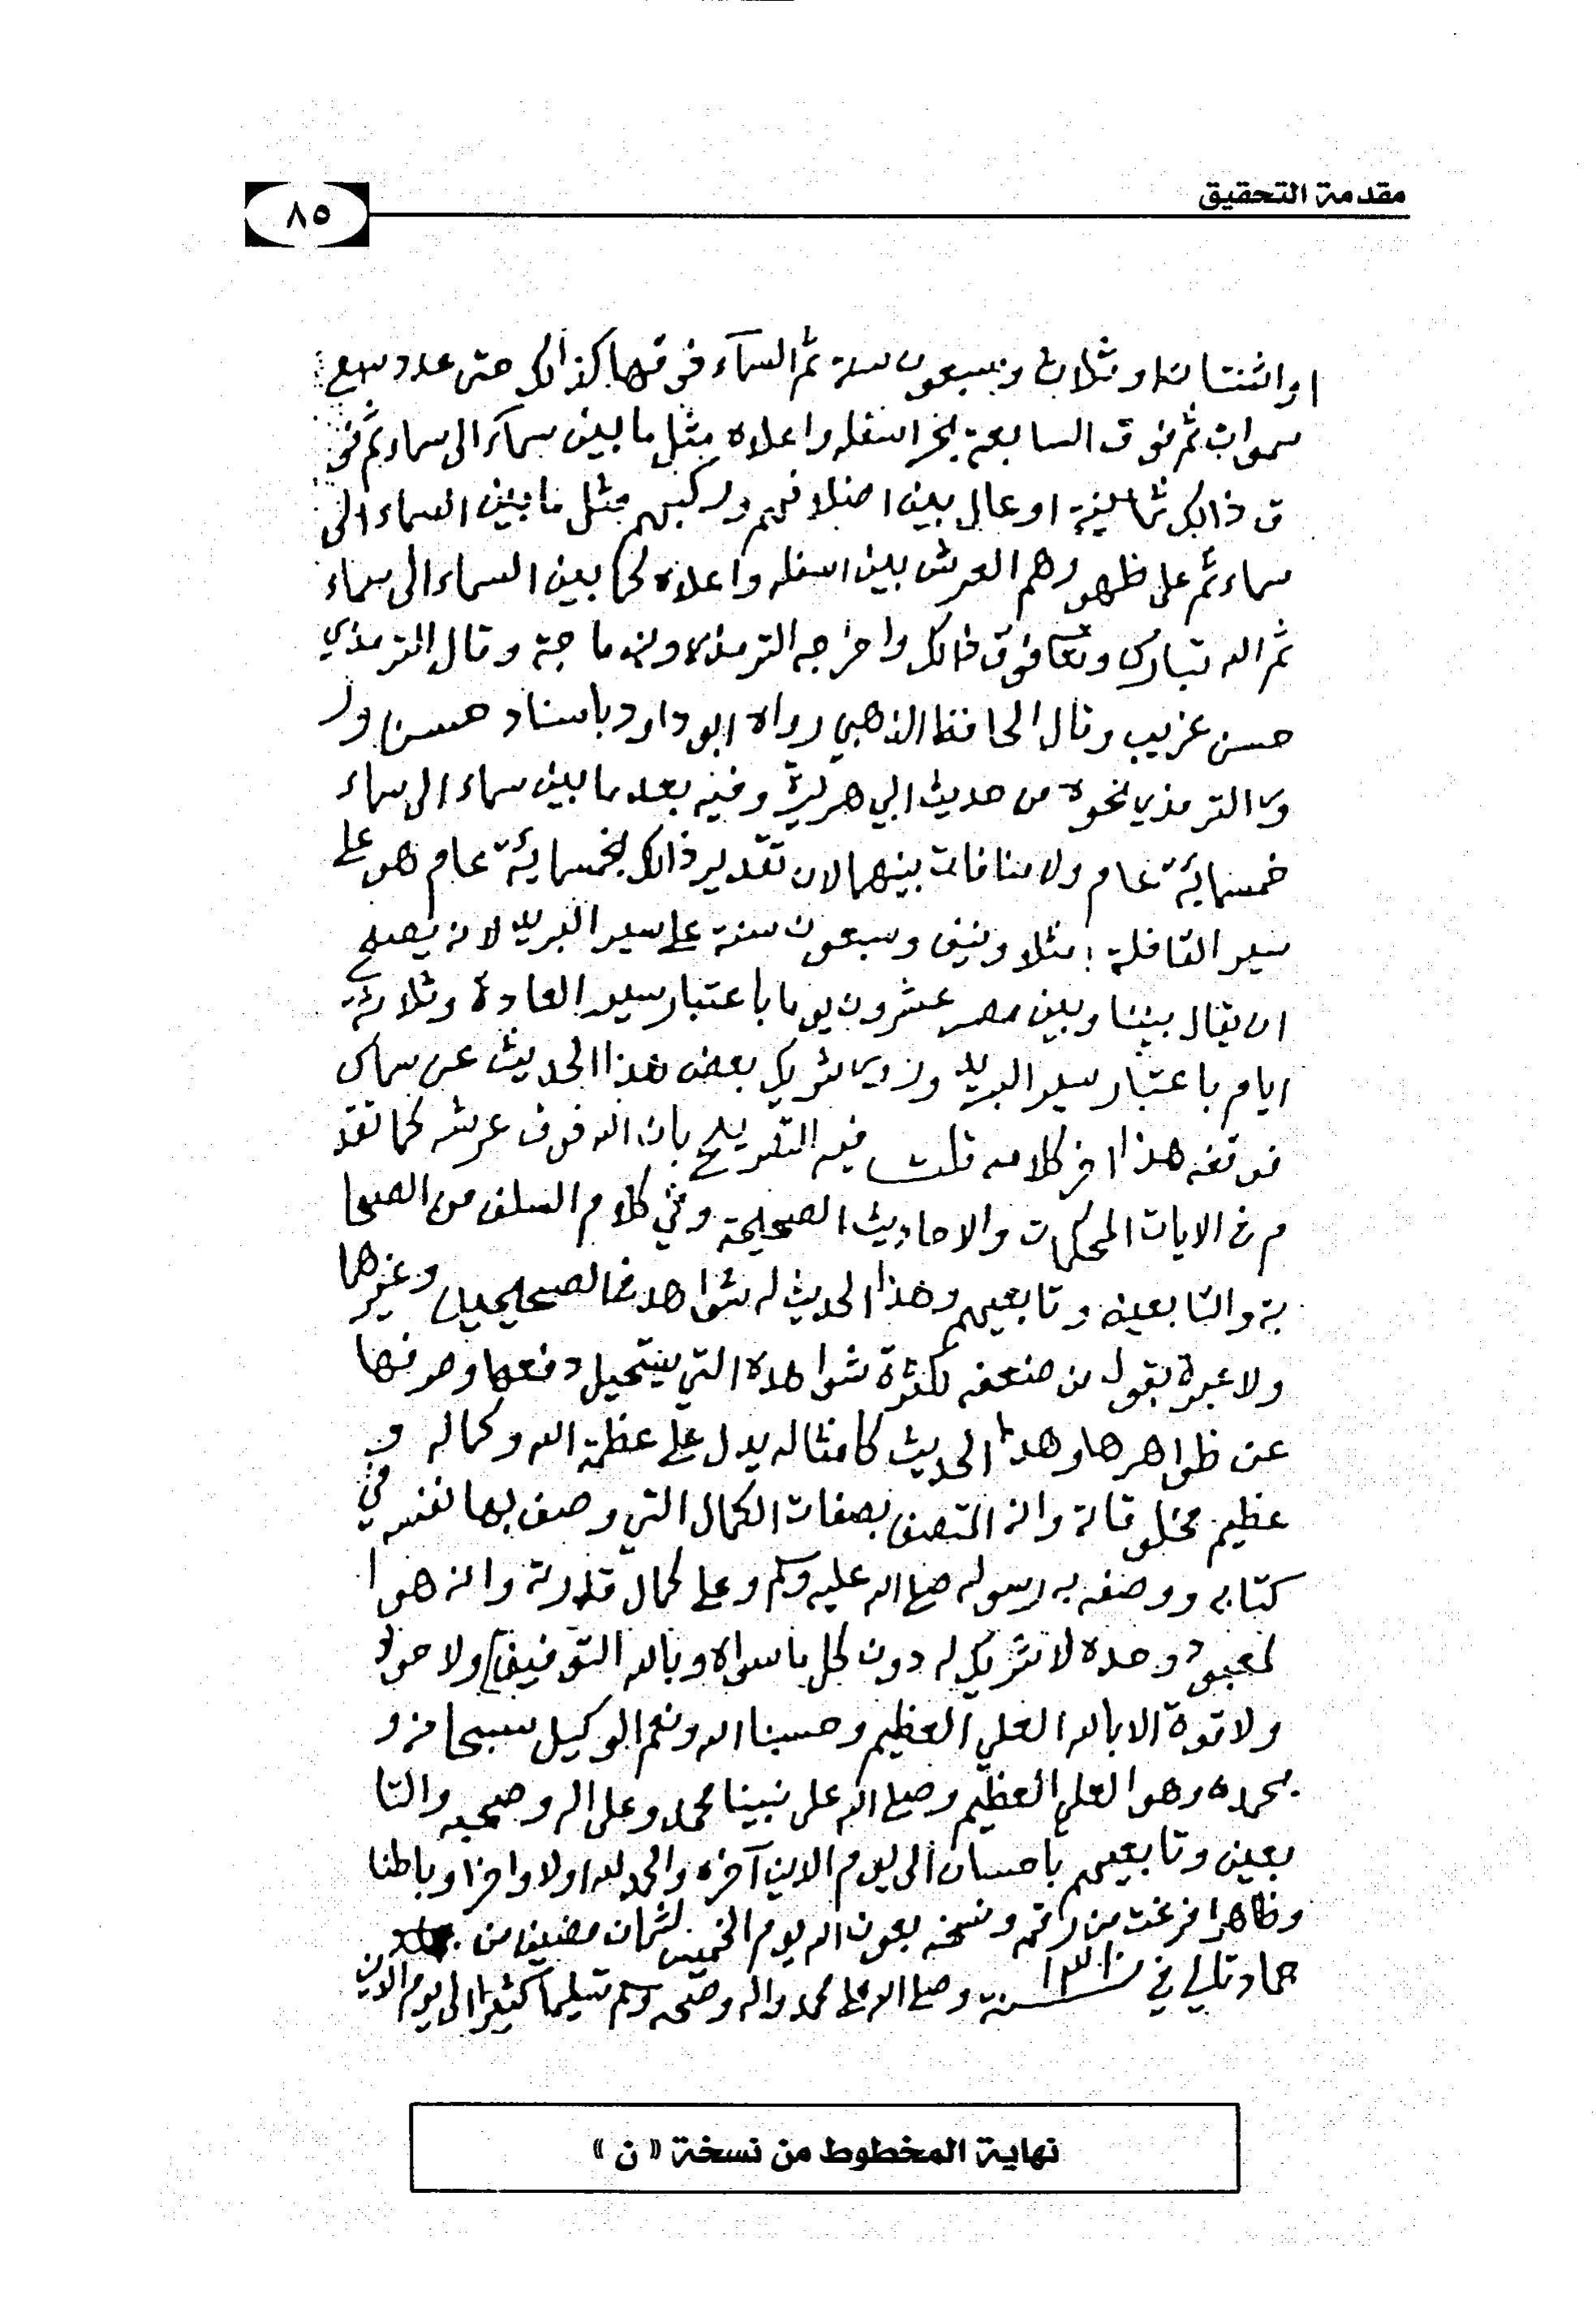 مقدمة التحقيق
٨٥
او اثنتان او ثلاث وسبعون سنة ثم السمآء فوقها كذالك حتى عدد سبع
سموات ثم فوق السابعة بحر اسفله واعلاه مثل ما بين سمآء الى سماء ثم فو
ق ذالك ثمانية اوعال بين اضلافهم وركبهم مثل ما بين السماء الى
سماء ثم على ظهورهم العرش بين اسفله واعلاه كما بين السماء الى سماء
ثم الله تبارك وتعا فوق ذالك واخرجه الترمذي وابن ماجة وقال الترمذي
حسن غريب وقال الحافظ الذهبي رواه ابو داود باسناد حسن ور
وى الترمذي نحوه من حديث ابي هريرة وفيه بعد ما بين سماء الى سماء
خمسمائة عام ولا منافات بينهما لان تقدير ذالك بخمسمائة عام هو على
سير القافلة مثلا ونيف وسبعون سنة على سير البريد لانه يصح
ان يقال بيننا وبين مصر عشرون يوما باعتبار سير العادة وثلاثة
ايام باعتبار سير البريد وروى شريك بعض هذا الحديث عن سماك
فوقفه هذا اخر كلامه قلت فيه التصريح بان الله فوق عرشه كما تقد
م في الايات المحكمات والاحاديث الصحيحة وفي كلام السلف من الصحا
بة والتابعين وتابعيهم وهذا الحديث له شواهد في الصحيحين وغيرهما
ولا عبرة بقول من ضعفه لكثرة شواهده التي يستحيل دفعها وصرفها
عن ظواهرها وهذا الحديث كامثاله يدل على عظمة الله وكماله و
عظيم مخلوقاته وانه المتصف بصفات الكمال التي وصف بها نفسه في
كتابه ووصفه به رسوله صلى الله عليه وسلم وعلى كمال قدرته وانه هو ا
لمعبود وحده لا شريك له دون كل ما سواه وبالله التوفيق ولا حول
ولا قوة الا بالله العلي العظيم وحسبنا الله ونعم الوكيل سبحانه و
بحمده وهو العلي العظيم وصلى الله على نبينا محمد وعلى اله وصحبه والتا
بعين وتابعيهم باحسان الى يوم الدين آخره والحمد لله اولا واخرا وباطنا
وظاهرا فرغت من رقمه ونسخه بعون الله يوم الخميس لثمان مضين من
جماد تالي في سنة وصلى الله على محمد واله وصحبه وسلم تسليما كثيرا الى يوم الدين
نهاية المخطوط من نسخة «ن»